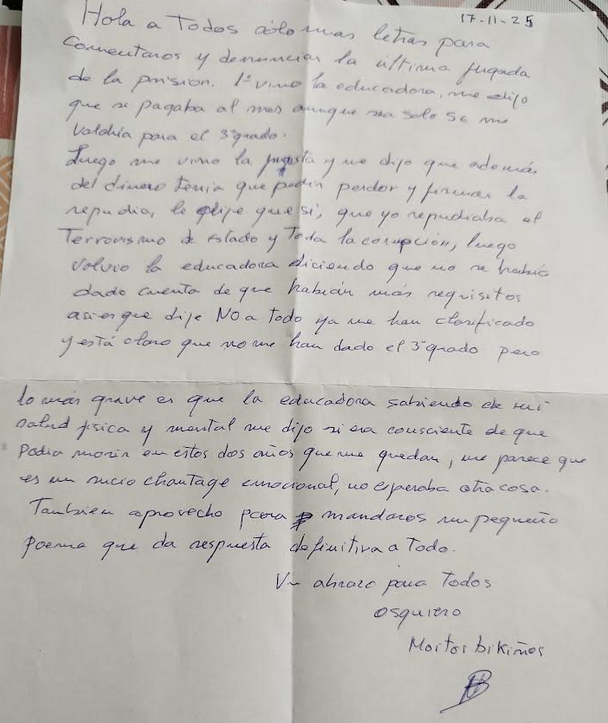 17-11-25
Hola a Todos sólo unas letras para
comentaros y denunciar la última jugada
de la prision. 1º vino la educadora, me dijo
que si pagaba al mes aunque sea solo 5€ me
valdria para el 3ºgrado.
Luego me vino la jurista y me dijo que además
del dinero tenia que pedir perdon y firmar la
repudia, le dije que si, que yo repudiaba el
Terrorismo de estado y Toda la corrupción, luego
volvio la educadora diciendo que no se habia
dado cuenta de que habian más requisitos
asi es que dije NO a Todo ya me han clasificado
y está claro que no me han dado el 3ºgrado pero
lo más grave es que la educadora sabiendo de mi
salud fisica y mental me dijo si era consciente de que
podia morir en estos dos años que me quedan, me parece que
es un sucio chantage emocional, no esperaba otra cosa.
Tambien aprovecho para mandaros un pequeño
poema que da respuesta definitiva a Todo.
Un abrazo para Todos
os quiero
Moitos bikiños